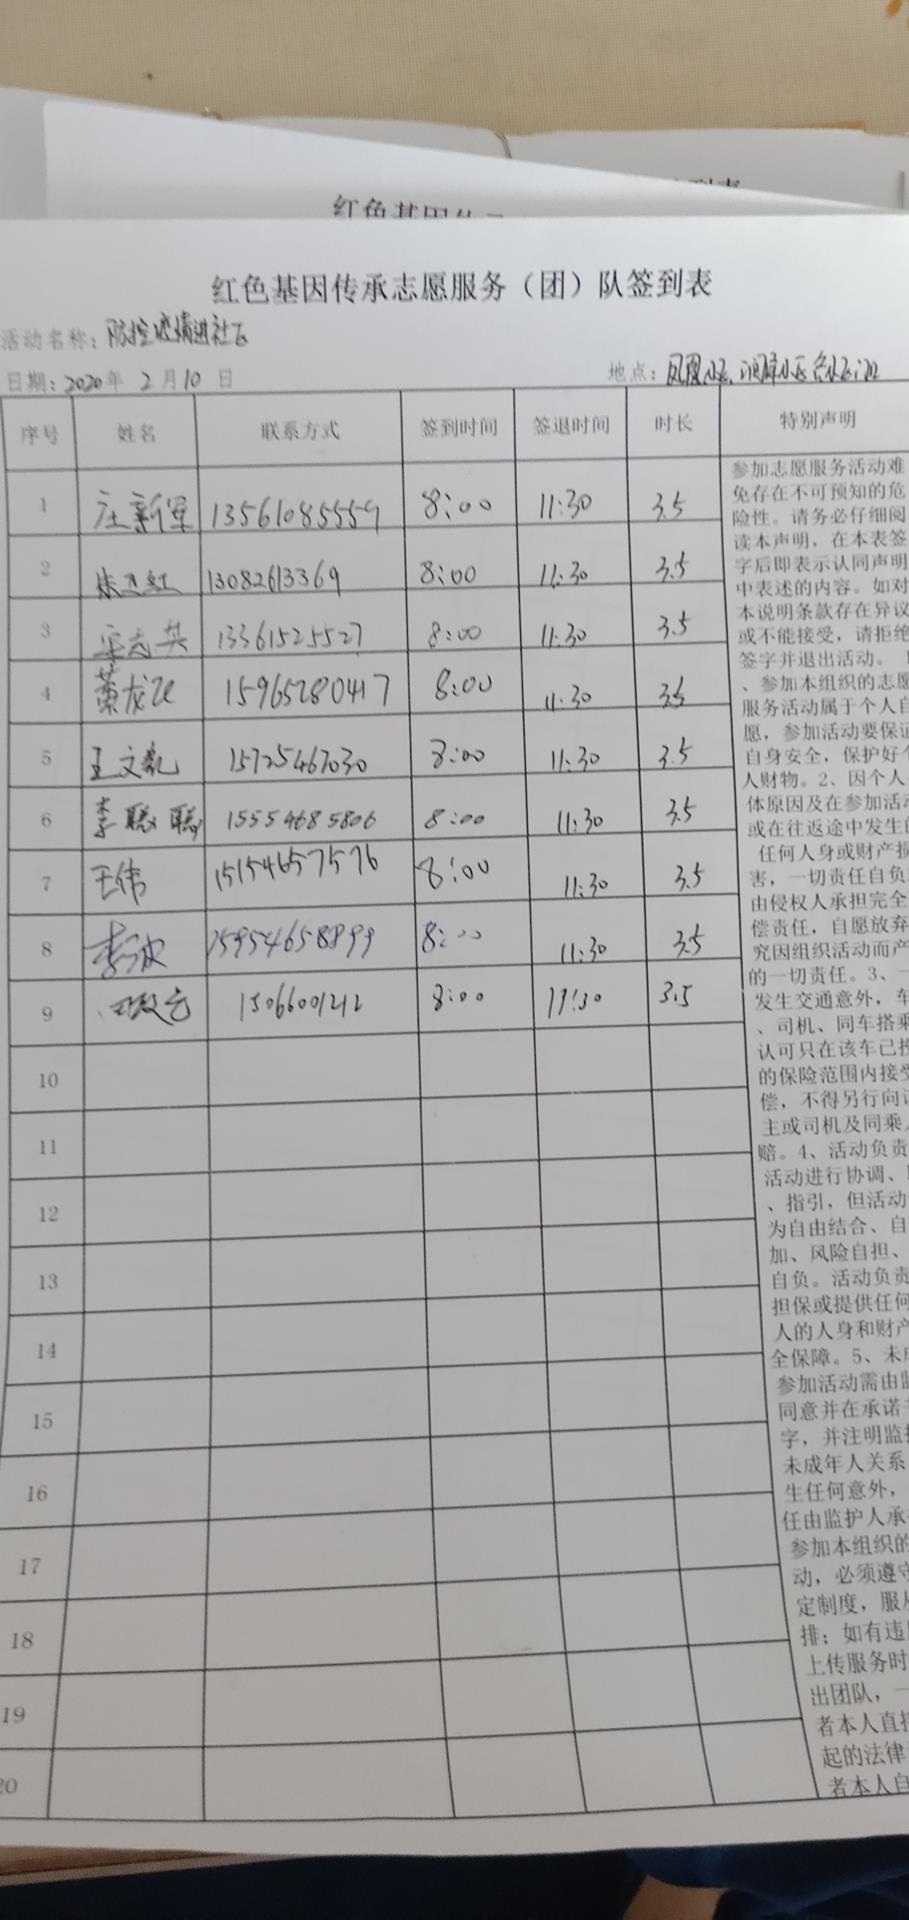 红色基因传承志愿服务（团）队签到表
活动名称：防控疫情进社区
日期：2020年 2月10日 地点：凤凰小区、
序号 姓名 联系方式 签到时间 签退时间 时长 特别声明
1 庄新军 13561085559 8:00 11:30 3.5
2 13082613369 8:00 11:30 3.5
3 13361525527 8:00 11:30 3.5
4 15965280417 8:00 11:30 3.5
5 王文凯 15725467030 8:00 11:30 3.5
6 李聪聪 15554685806 8:00 11:30 3.5
7 王伟 15154657576 8:00 11:30 3.5
8 李波 15954658899 8:00 11:30 3.5
9 15066001212 8:00 11:30 3.5
10
11
12
13
14
15
16
17
18
19
20
参加志愿服务活动难
免存在不可预知的危
险性。请务必仔细阅
读本声明，在本表签
字后即表示认同声明
中表述的内容。如对
本说明条款存在异议
或不能接受，请拒绝
签字并退出活动。
、参加本组织的志愿
服务活动属于个人自
愿，参加活动要保证
自身安全，保护好个
人财物。2、因个人
体原因及在参加活动
或在往返途中发生的
任何人身或财产损
害，一切责任自负
由侵权人承担完全
偿责任，自愿放弃
究因组织活动而产
的一切责任。3、一
发生交通意外，车
、司机、同车搭乘
认可只在该车已投
的保险范围内接受
偿，不得另行向
主或司机及同乘
赔。4、活动负责
活动进行协调、
、指引，但活动
为自由结合、自
加、风险自担、
自负。活动负责
担保或提供任何
人的人身和财产
全保障。5、未成
参加活动需由监
同意并在承诺书
字，并注明监护
未成年人关系
生任何意外，
任由监护人承
参加本组织的
动，必须遵守
定制度，服从
排；如有违
上传服务时
出团队，一
者本人直接
起的法律
者本人自